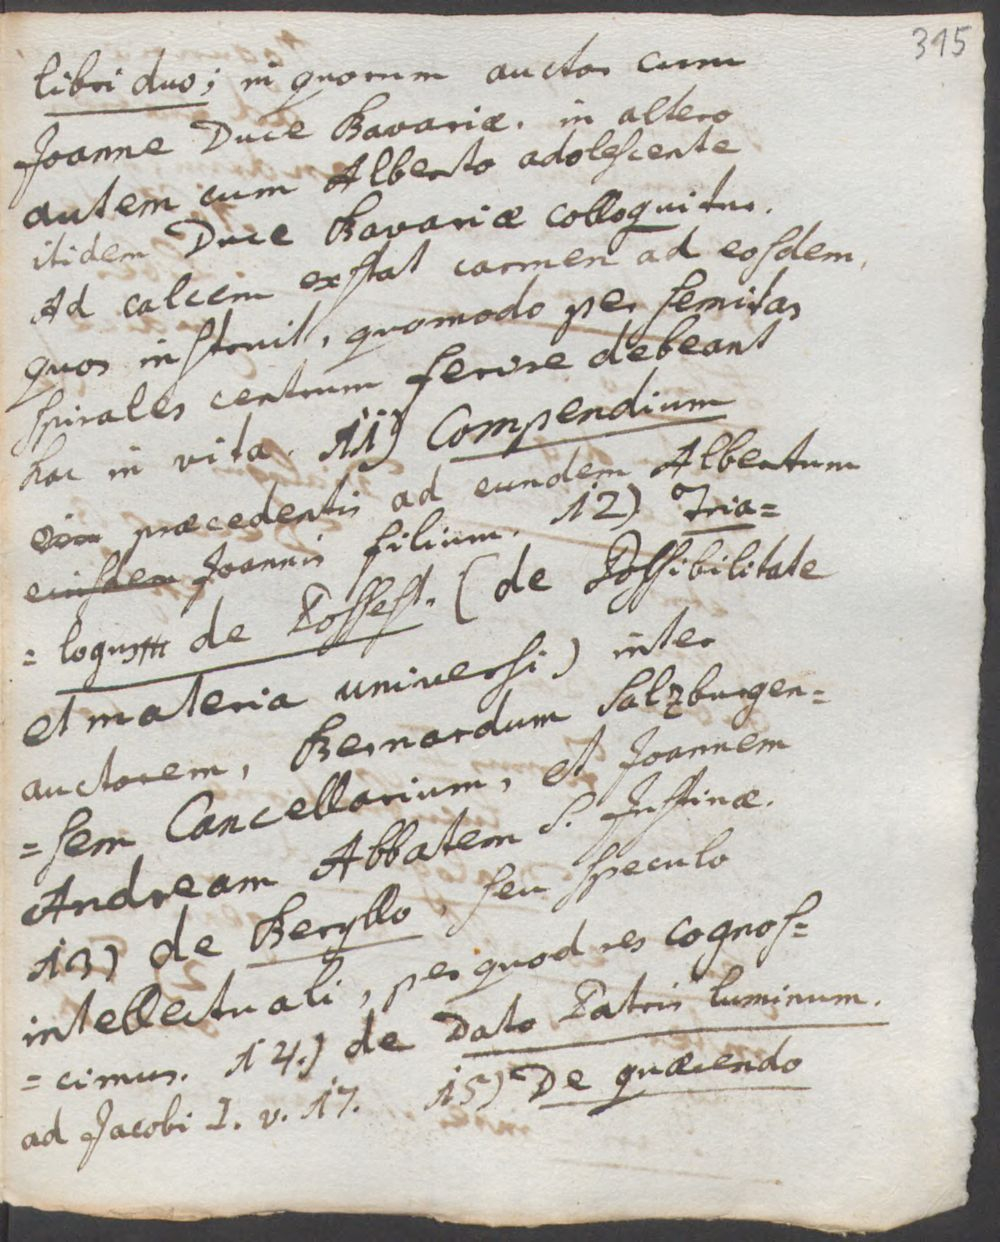 315
libri duo; in quorum auctor cum
Joanne Duce Bavariæ. in altero
autem cum Alberto adolescente
itidem Duce Bavariæ colloquitur.
Ad calcem exstat carmen ad eosdem,
quos instruit, quomodo per semitas
spirales centrum ferire debeant
hac in vita. 11) Compendium
præcedentis ad eundem Albertum
Joannis filium. 12) Tria=
=logus de Possest. (de Possibilitate
et materia universi) inter
auctorem, Bernardum Salzburgen=
=sem Cancellarium, et Joannem
Andream Abbatem S. Justinæ.
13) de Beryllo, seu speculo
intellectuali, per quod res cognos=
=cimus. 14.) de Dato Patris luminum.
ad Jacobi I. v. 17. 15) De quærendo